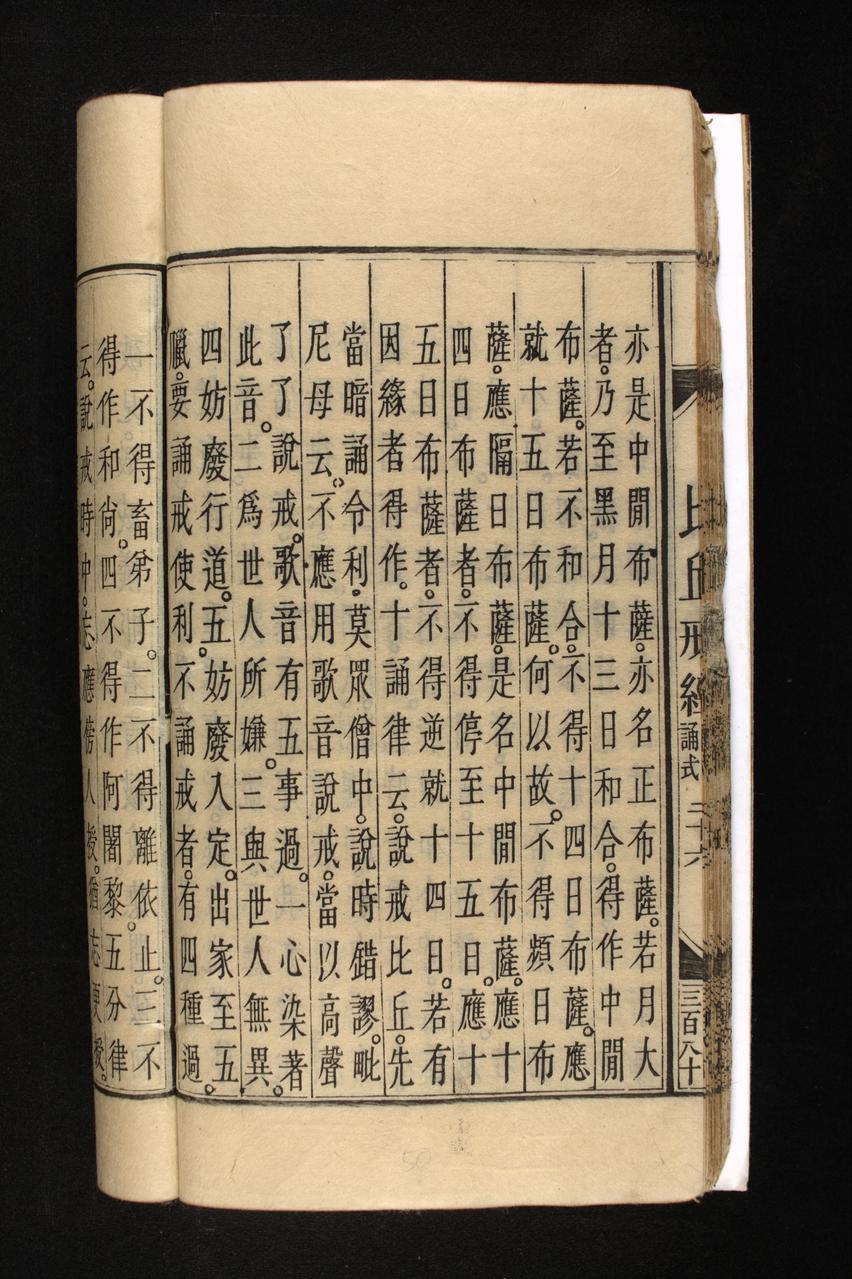 比丘戒經 誦式 二十六 三百八十
亦是中間布薩。亦名正布薩。若月大
者。乃至黑月十三日和合。得作中間
布薩。若不和合。不得十四日布薩。應
就十五日布薩。何以故。不得頻日布
薩。應隔日布薩。是名中間布薩。應十
四日布薩者。不得停至十五日。應十
五日布薩者。不得逆就十四日。若有
因緣者得作。十誦律云。說戒比丘。先
當暗誦令利。莫眾僧中。說時錯謬。毗
尼母云。不應用歌音說戒。當以高聲
了了說戒。歌音有五事過。一心染著
此音。二為世人所嫌。三與世人無異。
四妨廢行道。五妨廢入定。出家至五
臘。要誦戒使利。不誦戒者。有四種過。
一不得畜弟子。二不得離依止。三不
得作和尚。四不得作阿闍黎五分律
云。說戒時中。忘應傍人授。猶忘更授。